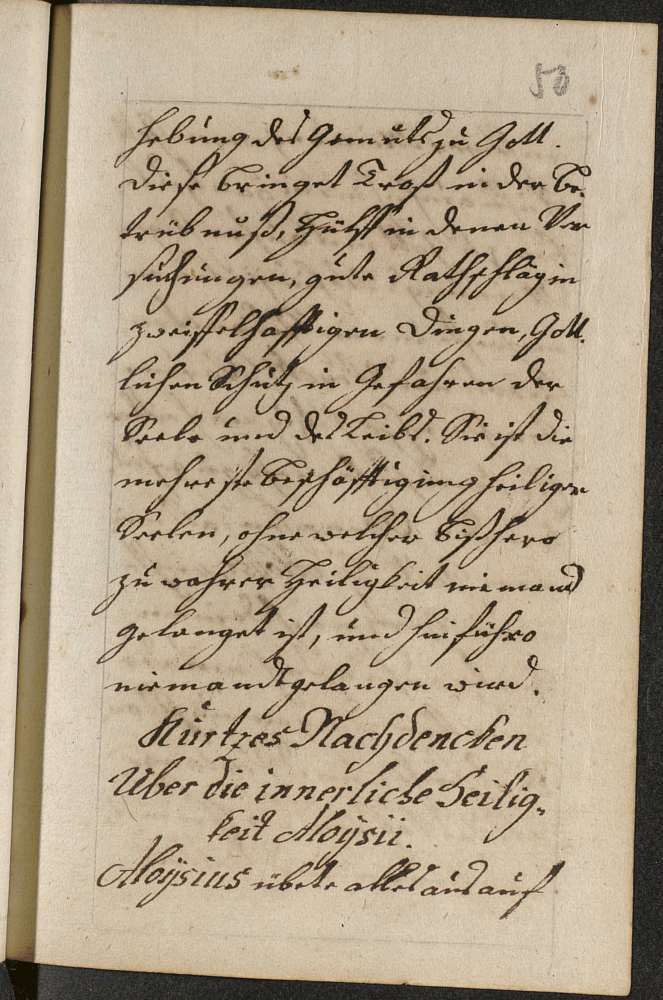 53
hebung des Gemuts zu Gott.
Diese bringet Trost in der Be-
trübnuß, Hülff in denen Ver
suchungen, gute Rathschläg in
zweiffelhafftigen Dingen, Gött-
lichen Schutz in Gefahren der
Seele und des Leibs. Sie ist die
mehreste Beschäfftigung heiliger
Seelen, ohne welcher bißhero
zu wahrer Heiligkeit niemand
gelanget ist, und hinführo
niemandt gelangen wird.
Kurtzes Nachdencken
Uber die innerliche Heilig-
keit Aloÿsii.
Aloÿsius übete alles aus auf